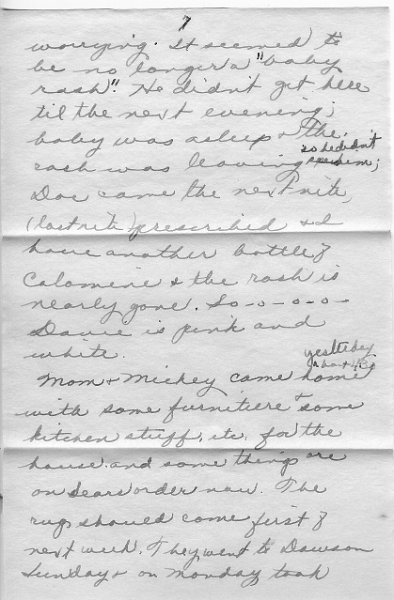 7
worrying. It seemed to
be no longer a "baby
rash". He didn't get here
til the next evening;
baby was asleep & the
so he didn't
rash was leaving see him;
Doc came the next nite,
(last nite) prescribed & I
have another bottle of
Calomine & the rash is
nearly gone. So-o-o-o-o-
Davie is pink and
white.
yestteday
Mom & Mickey came home
with some furniture & some
kitchen stuff, etc. for the
house and some things are
on Sears order now. The
rugs should come first of
next week. They went to Dawson
Sunday & on Monday took